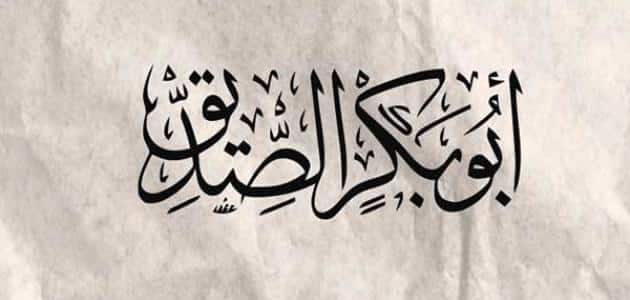 أَبُو بَكْرٍ الصِّدِّيقِ